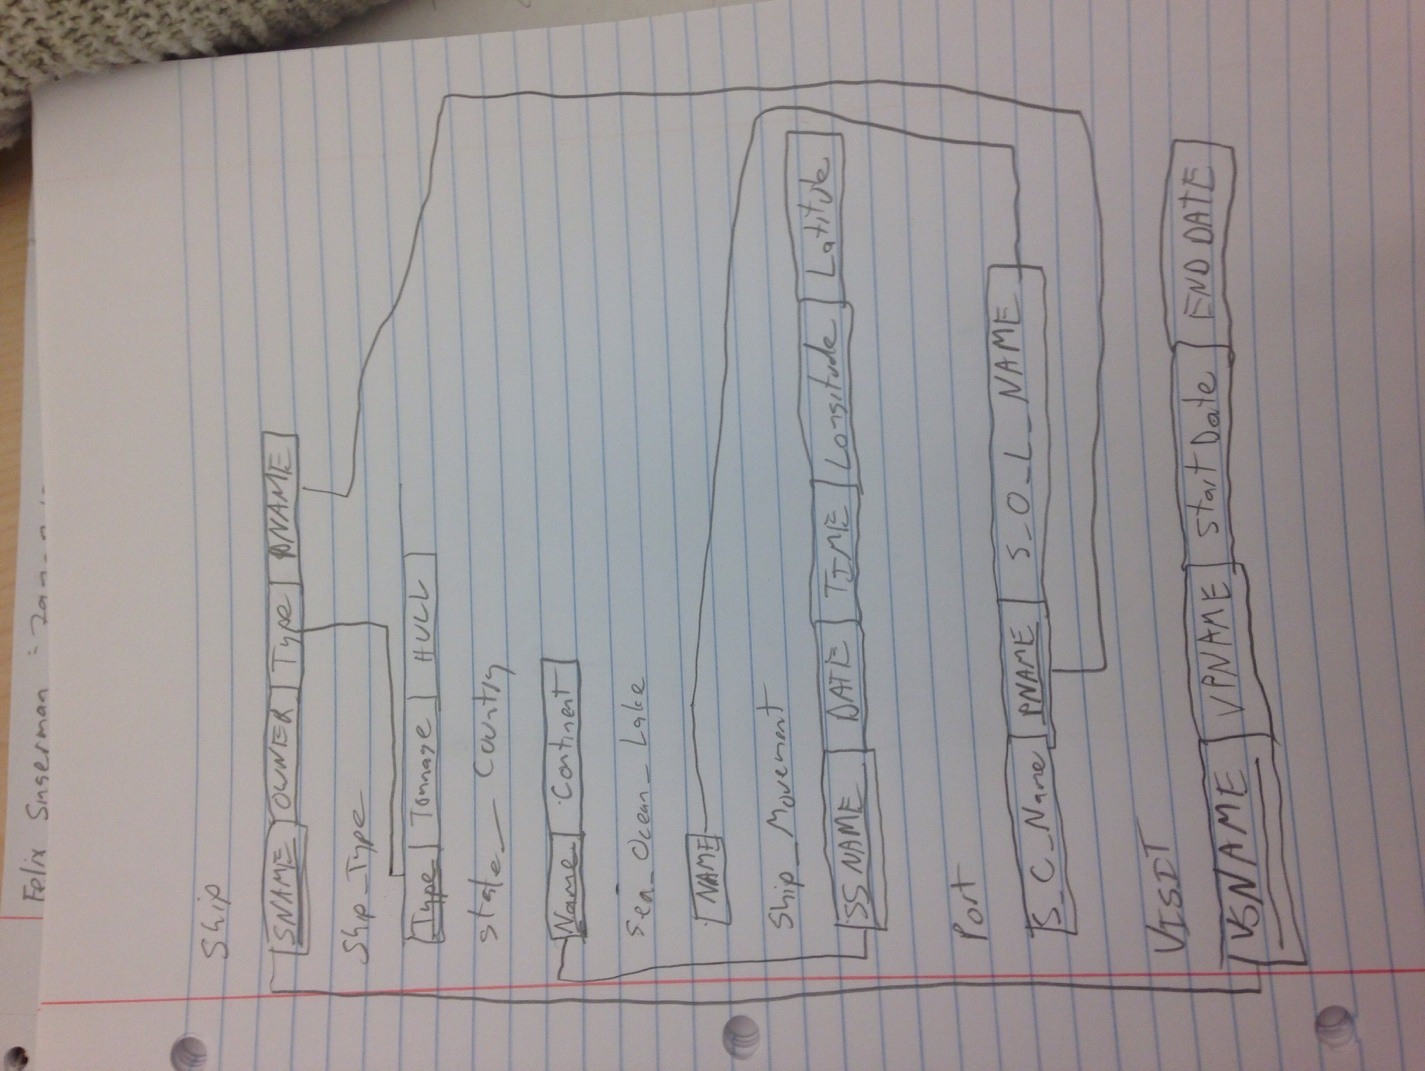 Felix
Ship
SNAME OWNER Type PNAME
Ship_Type
Type Tonnage HULL
State_Country
Name Continent
Sea_Ocean_Lake
NAME
Ship_Movement
SSNAME DATE TIME Longitude Latitude
Port
S_C_Name PNAME S_O_L_NAME
VISIT
VSNAME VPNAME StartDate ENDDATE